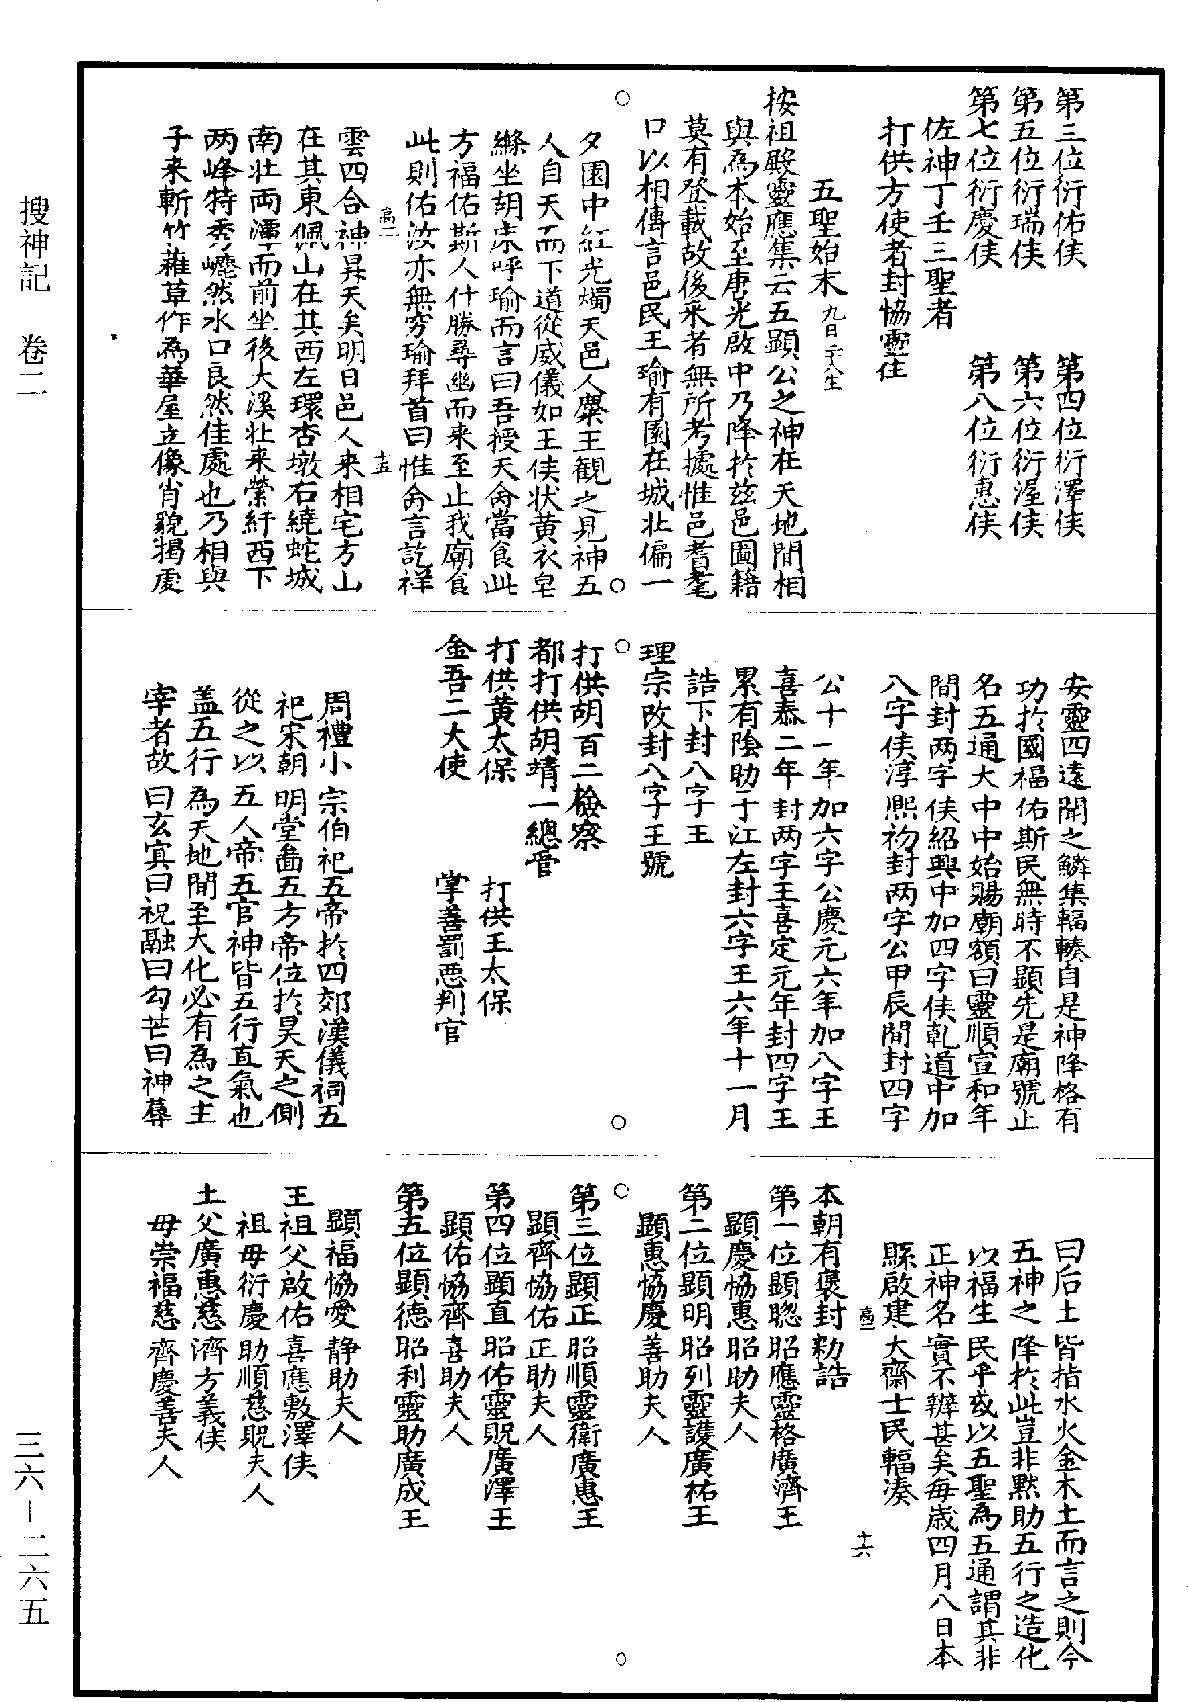 搜神記　卷二
三六—二六五
第三位衍佑侯　第四位衍澤侯
第五位衍瑞侯　第六位衍渥侯
第七位衍慶侯　第八位衍惠侯
佐神丁壬三聖者
打供方使者封協靈侯
五聖始末 九月二十八生
按祖殿靈應集云五顯公之神在天地間相
與為本始至唐光啟中乃降於兹邑圖籍
莫有登載故後來者無所考據惟邑耆耄
口以相傳言邑民王瑜有園在城北偏一
夕園中紅光燭天邑人麋王觀之見神五
人自天而下道從威儀如王侯狀黄衣皂
縧坐胡床呼瑜而言曰吾授天命當食此
方福佑斯人什勝尋幽而来至止我廟食
此則佑汝亦無窮瑜拜首曰惟命言訖祥
高二　十五
雲四合神昇天矣明日邑人来相宅方山
在其東佩山在其西左環杏墩右繞蛇城
南北兩潭而前坐後大溪北来縈紆西下
两峰特秀巉然水口良然佳處也乃相與
子来斬竹薙草作為華屋立像肖貌揭虔
安靈四遠聞之鱗集輻輳自是神降格有
功於國福佑斯民無時不顯先是廟號止
名五通大中中始賜廟額曰靈順宣和年
間封两字侯紹興中加四字侯乾道中加
八字侯淳熙初封两字公甲辰間封四字
公十一年加六字公慶元六年加八字王
喜泰二年封两字王喜定元年封四字王
累有陰助于江左封六字王六年十一月
誥下封八字王
理宗改封八字王號
打供胡百二檢察
都打供胡靖一總管
打供黄太保　打供王太保
金吾二大使　掌善罰惡判官
周禮小宗伯祀五帝於四郊漢儀祠五
祀宋朝明堂畫五方帝位於昊天之側
從之以五人帝五官神皆五行直氣也
盖五行為天地間至大化必有為之主
宰者故曰玄冥曰祝融曰勾芒曰神蓐
曰后土皆指水火金木土而言之則今
五神之降於此豈非默助五行之造化
以福生民乎或以五聖為五通謂其非
正神名實不辨甚矣每歲四月八日本
縣啟建大齋士民輻湊
高二　十六
本朝有褒封勑誥
第一位顯聰昭應靈格廣濟王
顯慶協惠昭助夫人
第二位顯明昭列靈護廣祐王
顯惠協慶善助夫人
第三位顯正昭順靈衛廣惠王
顯齊協佑正助夫人
第四位顯直昭佑靈貺廣澤王
顯佑協齊喜助夫人
第五位顯德昭利靈助廣成王
顯福協愛静助夫人
王祖父啟佑喜應敷澤侯
祖母衍慶助順慈貺夫人
土父廣惠慈濟方義侯
母崇福慈齊慶善夫人